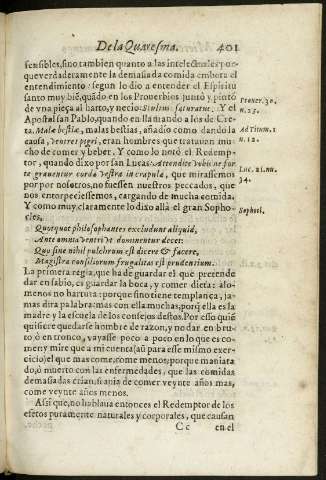 De la Quaresma. 401
sensibles, sino tambien quanto a las intelectuales: por
que verdaderamente la demasiada comida embota el
entendimiento: segun lo dio a entender el Espiritu
santo muy biē, quādo en los Prouerbios juntò y pintó
de vna pieça al harto, y necio: Stultus saturatus. Y el
Apostol san Pablo, quando en llamando a los de Cre-
ta. Malæ bestiæ, malas bestias, añadio como dando la
causa, Ventres pigri, eran hombres que tratauan mu-
cho de comer y beber. Y como lo notó el Redemp-
tor, quando dixo por san Lucas: Attendite vobis ne for
te grauentur corda vestra in crapula, que mirassemos
por nosotros, no fuessen nuestros peccados, que
nos entorpeciessemos, cargando de mucha comida.
Y como muy claramente lo dixo allá el gran Sopho-
cles,
Quotquot philosophantes excludunt aliquid,
Ante omnia ventri vt dominentur decet:
Quo sine nihil pulchrum est dicere & facere,
Magistra consiliorum frugalitas est prudentium.
La primera regla, que ha de guardar el que pretende
dar en sabio, es guardar la boca, y comer dieta: alo-
menos no hartura: porque sino tiene templança, ja-
mas dira palabra: mas con ella muchas, porq̃ ella es la
madre y la escuela de los consejos destos. Por esso quiē
quisiere quedarse hombre de razon, y no dar en bru-
to, ò en tronco, vayasse poco a poco en lo que es co-
mer y mire que a mi cuenta (aū para esse mismo exer-
cicio) el que mas come, come menos: porque mania ta
do, ò muerto con las enfermedades, que las comidas
demasiadas crian, si auia de comer veynte años mas,
come veynte años menos.
Assi que, no hablaua entonces el Redemptor de los
efetos puramente naturales y corporales, que causan
Cc en el
Prouer. 30.
n. 23.
Ad Titum. 1
n. 12.
Luc. 21. nu.
34.
Sophocl.